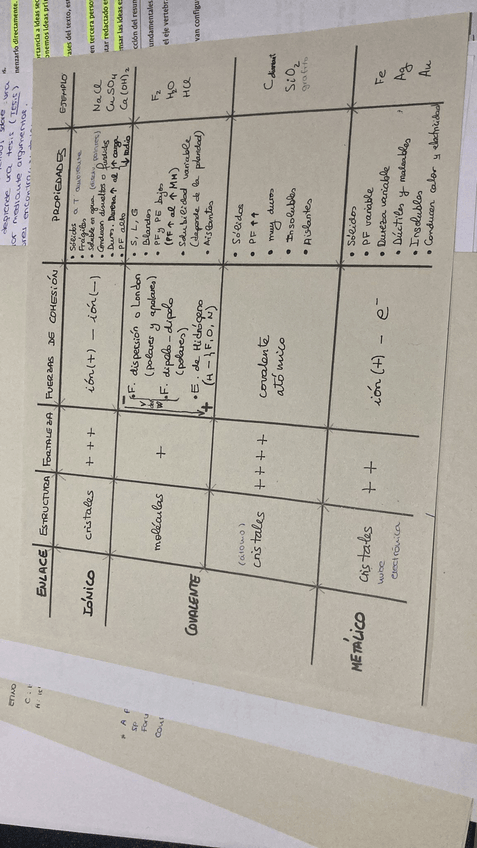 ENLACE ESTRUCTURA FORTALEZA FUERZAS DE COHESIÓN PROPIEDADES EJEMPLO
IÓNICO
cristales
+ + +
ión(+) - ión(-)
• Sólidos a T ambiente
• Frágiles
• Soluble en agua
• Conducen disueltos o fundidos
• Duros. Dureza ↑ al ↑ carga
↓ radio
• PF alto
NaCl
CuSO4
Ca(OH)2
COVALENTE
moléculas
+
• F. dispersión o London
(polares y apolares)
• F. dipolo-dipolo
(polares)
• E. de Hidrógeno
(H - } F, O, N)
- V der W +
• S, L, G
• Blandos
• PF y PE bajos
(PF ↑ al ↑ MM)
• Solubilidad variable
(depende de la polaridad)
• Aislantes
F2
H2O
HCl
(átomo)
cristales
+ + + +
covalente
atómico
• Sólidos
• PF ↑↑
• muy duros
• Insolubles
• Aislantes
C
SiO2
grafito
METÁLICO
cristales
nube
electrónica
+ +
ión(+) - e-
• Sólidos
• PF variable
• Dureza variable
• Dúctiles y maleables
• Insolubles
• Conducen calor y electricidad
Fe
Ag
Au